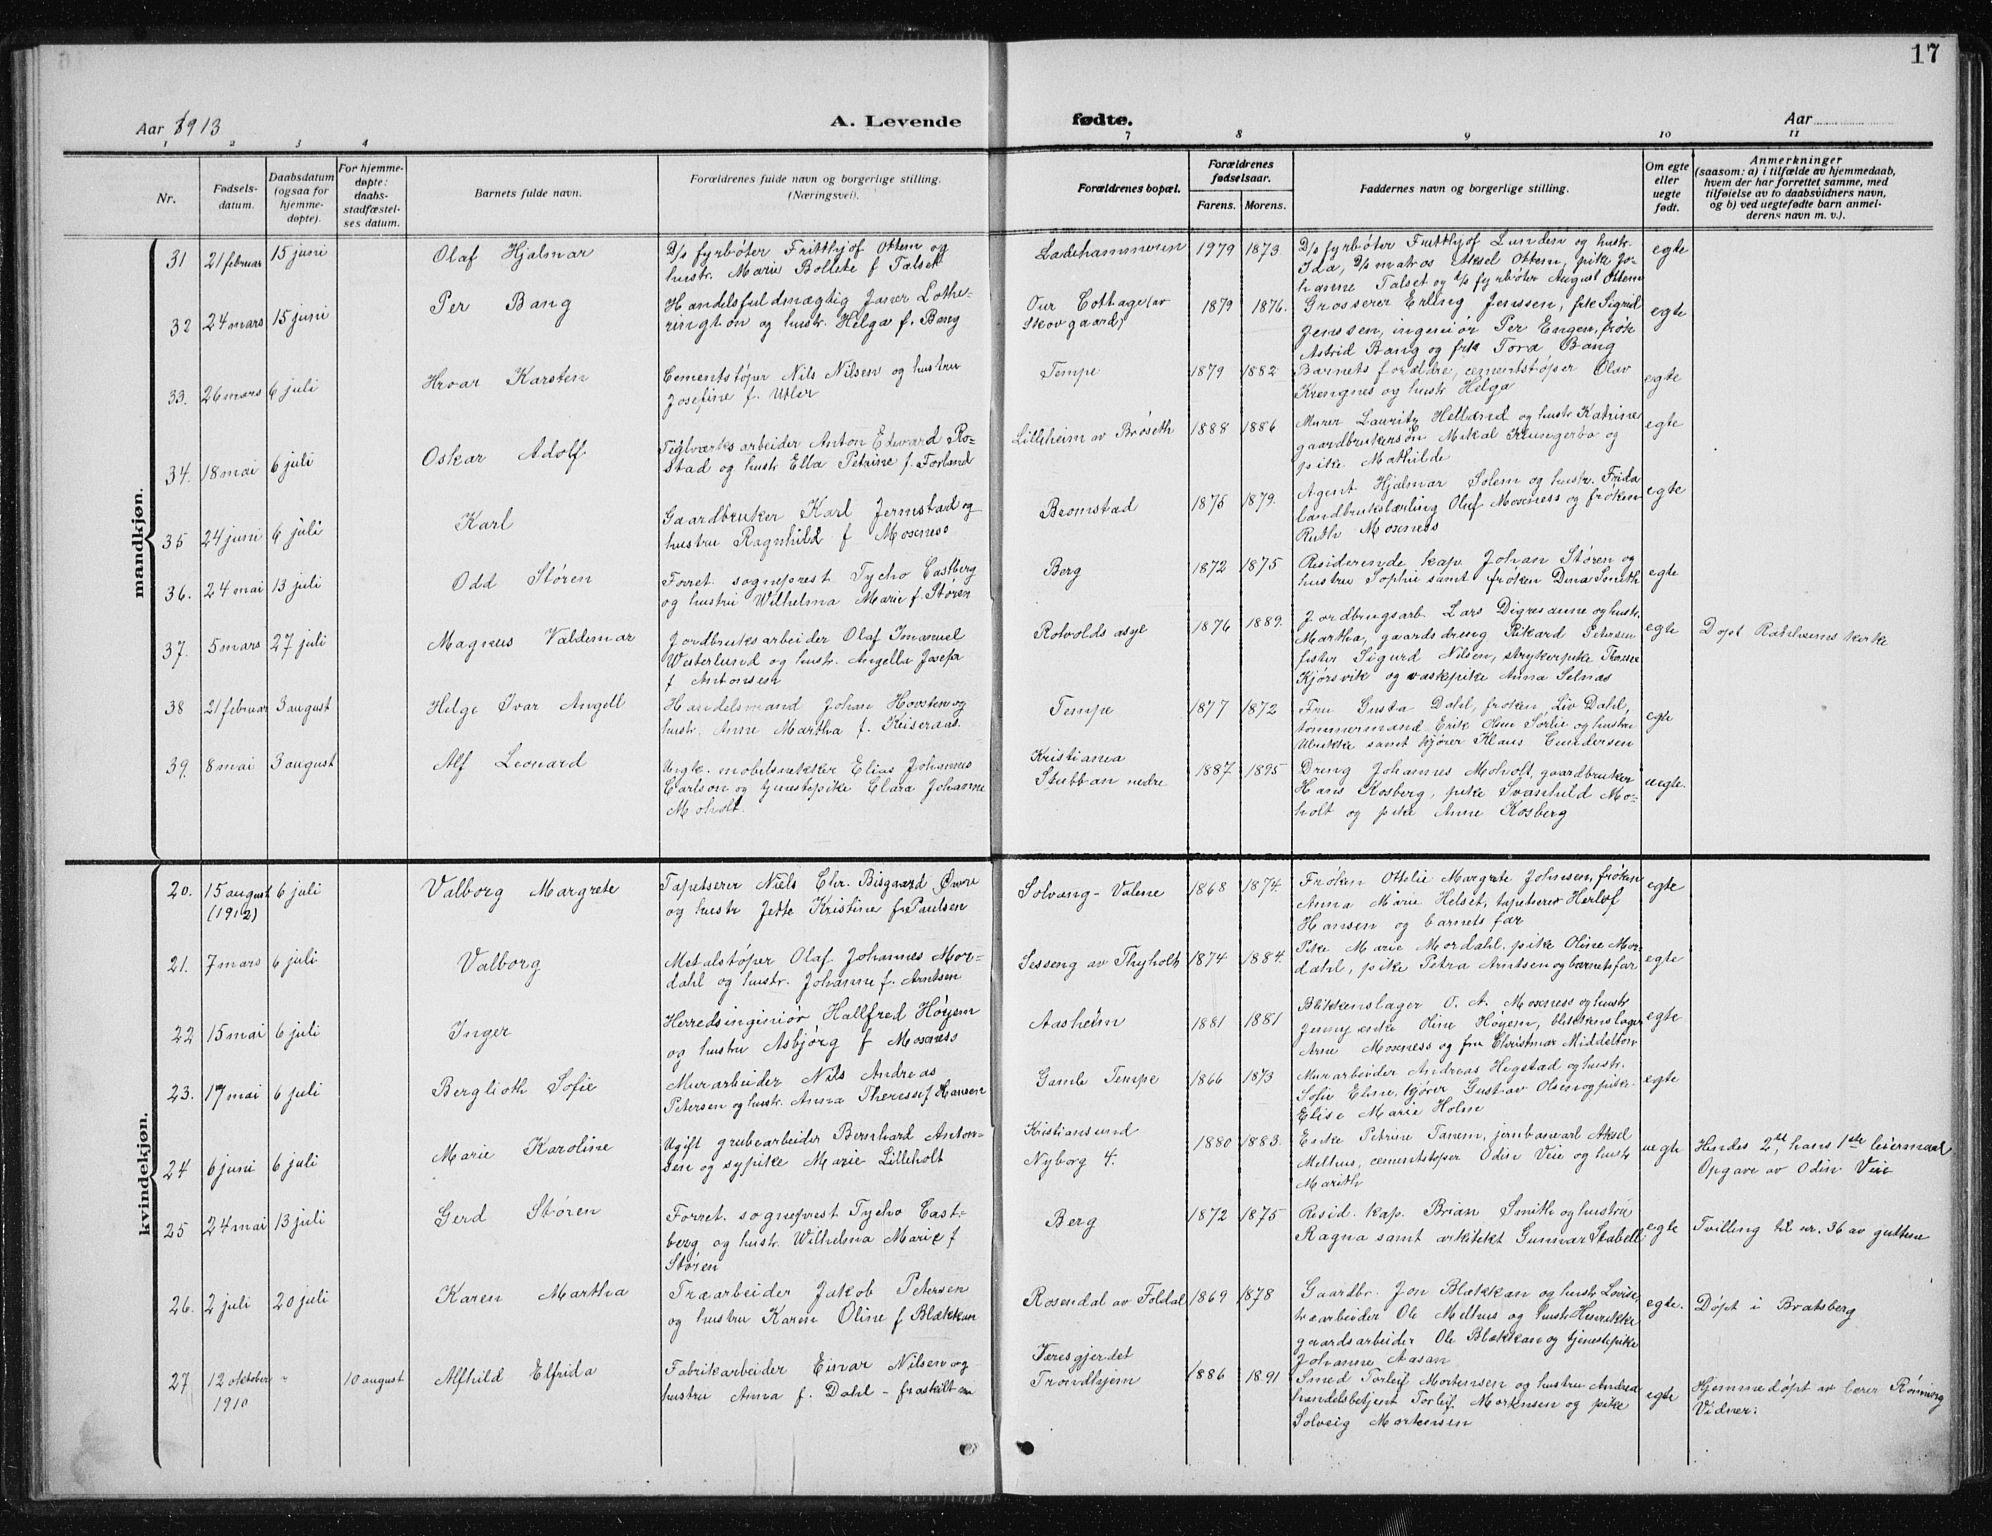 17
Aar 1913
A. Levende fødte.
Aar
1 2 3 4 7 8 9 10 11
Nr.
Fødsels-
datum.
Daabsdatum
(ogsaa for
hjemme-
døpte).
For hjemme-
døpte:
daabs-
stadfæstel-
ses datum.
Barnets fulde navn.
Forældrenes fulde navn og borgerlige stilling.
(Næringsvei).
Forældrenes bopæl.
Forældrenes
fødselsaar.
Farens. Morens.
Faddernes navn og borgerlige stilling.
Om egte
eller
uegte
født.
Anmerkninger
(saasom: a) i tilfælde av hjemmedaab,
hvem der har forrettet samme, med
tilføielse av to daabsvidners navn,
og b) ved uegtefødte barn anmel-
derens navn m. v.).
mandkjøn.
31 21 februar 15 juni Olaf Hjalmar
D/s fyrbøter Fritthjof Ottem og
hustr. Marie Bollete f Talset
Ladehammeren 1979 1873
D/s fyrbøter Fritthjof Lundin og hustr.
Ida, D/s matros Aksel Ottem, pike Jo-
hanne Talset og D/s fyrbøter August Ottem
egte
32 24 mars 15 juni Per Bang
Handelsfuldmægtig Janer Lothe-
rington og hustr. Helga f. Bang
Our Cottage (av
Skovgaard)
1879 1876.
Grosserer Erling Jenssen, frk Sigrid
Jenssen, ingeniør Per Engen, frøk
Astrid Bang og frk Tora Bang
egte
33. 26 mars 6 juli Hroar Karsten
Cementstøper Nils Nilsen og hustru
Josefine f. Utler
Tempe 1879 1882
Barnets forældre, cementstøper Olav
Krengnes og hustr Helga
egte
34. 18 mai 6 juli Oskar Adolf
Teglværksarbeider Anton Edvard Ro-
stad og hustr Ella Petrine f. Forland
Lilleheim av Brøseth 1888 1886
Murer Lauritz Helland og hustr Katrine
gaardbrukersøn Mikal Klungerbo og
pike Mathilde
egte
35 24 juni 6 juli Karl
Gaardbruker Karl Jermstad og
hustru Ragnhild f Moxness
Bromstad 1875 1879.
Agent Hjalmar Solem og hustr. Frida
landbrukslærling Oluf Moxness og frøken
Ruth Moxness
egte
36. 24 mai 13 juli Odd Støren
Forret. sogneprest Tycho Castberg
og hustru Wilhelma Marie f. Støren
Berg 1872 1875
Residerende kap. Johan Støren og
hustru Sophie samt frøken Dina Smith
egte
37. 5 mars 27 juli Magnus Valdemar
Jordbruksarbeider Olaf Imanuel
Westerlund og hustr. Angella Josefa
f Antonsen
Rotvolds asyl 1876 1889.
Jordbrugsarb. Lars Digresanne og hustr.
Martha, gaardsdreng Rikard Petersen
fisker Sigurd Nilsen, strykerpike Thrasse
Kjørsvik og vaskepike Anna Selnæs
egte Døpt Ratheims kirke
38 21 februar 3 august Helge Ivar Angell
Handelsmand Johan Hovsten og
hustr. Anne Martha f. Keiseraas
Tempe 1877 1872
Fru Gusta Dahl, frøken Liv Dahl,
tømmermand Erik Olsen Sørlie og hustru
Ulrikke samt kjører Klaus Gundersen
egte
39. 8 mai 3 august Alf Leonard
Ungk. møbelsnekker Elias Johannes
Carlson og tjenestepike Clara Johanne
Moholt
Kristiania
Stubban nedre
1887 1895
Dreng Johannes Moholt, gaardbruker
Hans Kosberg, pike Svanhild Mo-
holt og pike Anne Kosberg
uegte.
kvindekjøn.
20. 15 august (1912) 6 juli Valborg Margrete
Tapetserer Niels Chr. Bisgaard Øvre
og hustr Jette Kristine f. Paulsen
Solvang - Valene 1868 1874.
Frøken Ottilie Margrete Johnsen, frøken
Anna Marie Helset, tapetserer Herlof
Hansen og barnets far
egte
21. 7 mars 6 juli Valborg
Metalstøper Olaf Johannes Mor-
dahl og hustr. Johanne f. Arntsen
Sesseng av Thyholt 1874 1884.
Pike Marie Mordahl, pike Oline Mor-
dahl, pike Petra Arntsen og barnets far
egte
22 15 mai 6 juli Inger
Herredsingeniør Hallfred Høyem
og hustru Asbjørg f Moxness
Aasheim 1881 1881
Blikkenslager O. A. Moxness og hustr
Jenny enke Oline Høyem, blikkenslager
Arne Moxness og fru Christmar Middelton
egte
23. 17 mai 6 juli Berglioth Sofie
Murarbeider Nils Andreas
Petersen og hustr. Anna Therese f Hansen
Gamle Tempe 1866 1873
Murarbeider Andreas Hegstad og hustr.
Sofie Eline, kjører Gustav Olsen og pike
Elise Marie Holm
egte
24 6 juni 6 juli Marie Karoline
Ugift grubearbeider Bernhard Anton-
sen og sypike Marie Lilleholt
Kristiansund
Nyborg 4.
1880 1883.
Enke Petrine Tanem, jernbanearb Aksel
Melhus, cementstøper Odin Veie og hustr
Marith
uegte Hendes 2det, hans 1ste leiermaal
Opgave av Odin Veie
25 24 mai 13 juli Gerd Støren
Forret. sogneprest Tycho Cast-
berg og hustr. Wilhelma Marie f
Støren
Berg 1872 1875
Resid. kap. Brian Smith og hustru
Ragna samt arkitekt Gunnar Stabell
egte Tvilling til nr. 36 av guttene
26. 2 juli 20 juli Karen Martha
Træarbeider Jakob Petersen
og hustru Karen Oline f Blækkan
Rosendal av Foldal 1869 1878
Gaardbr. Jon Blækkan og hustr Lovise,
træarbeider Ole Melhus og hustr Henrikke
gaardsarbeider Ole Blækkan og tjenestepike
Johanne Aasan
egte. Døpt i Bratsberg
27 12 oktober 1910 " 10 august Alfhild Elfrida
Fabrikarbeider Einar Nilsen og
hustru Anna f. Dahl - fraskilt
Væresgjerdet
Trondhjem
1886 1891
Smed Torleif Mortensen og hustru Andrea
handelsbetjent Torleif Mortensen og pike
Solveig Mortensen
egte Hjemmedøpt av lærer Rønning
Vidner: